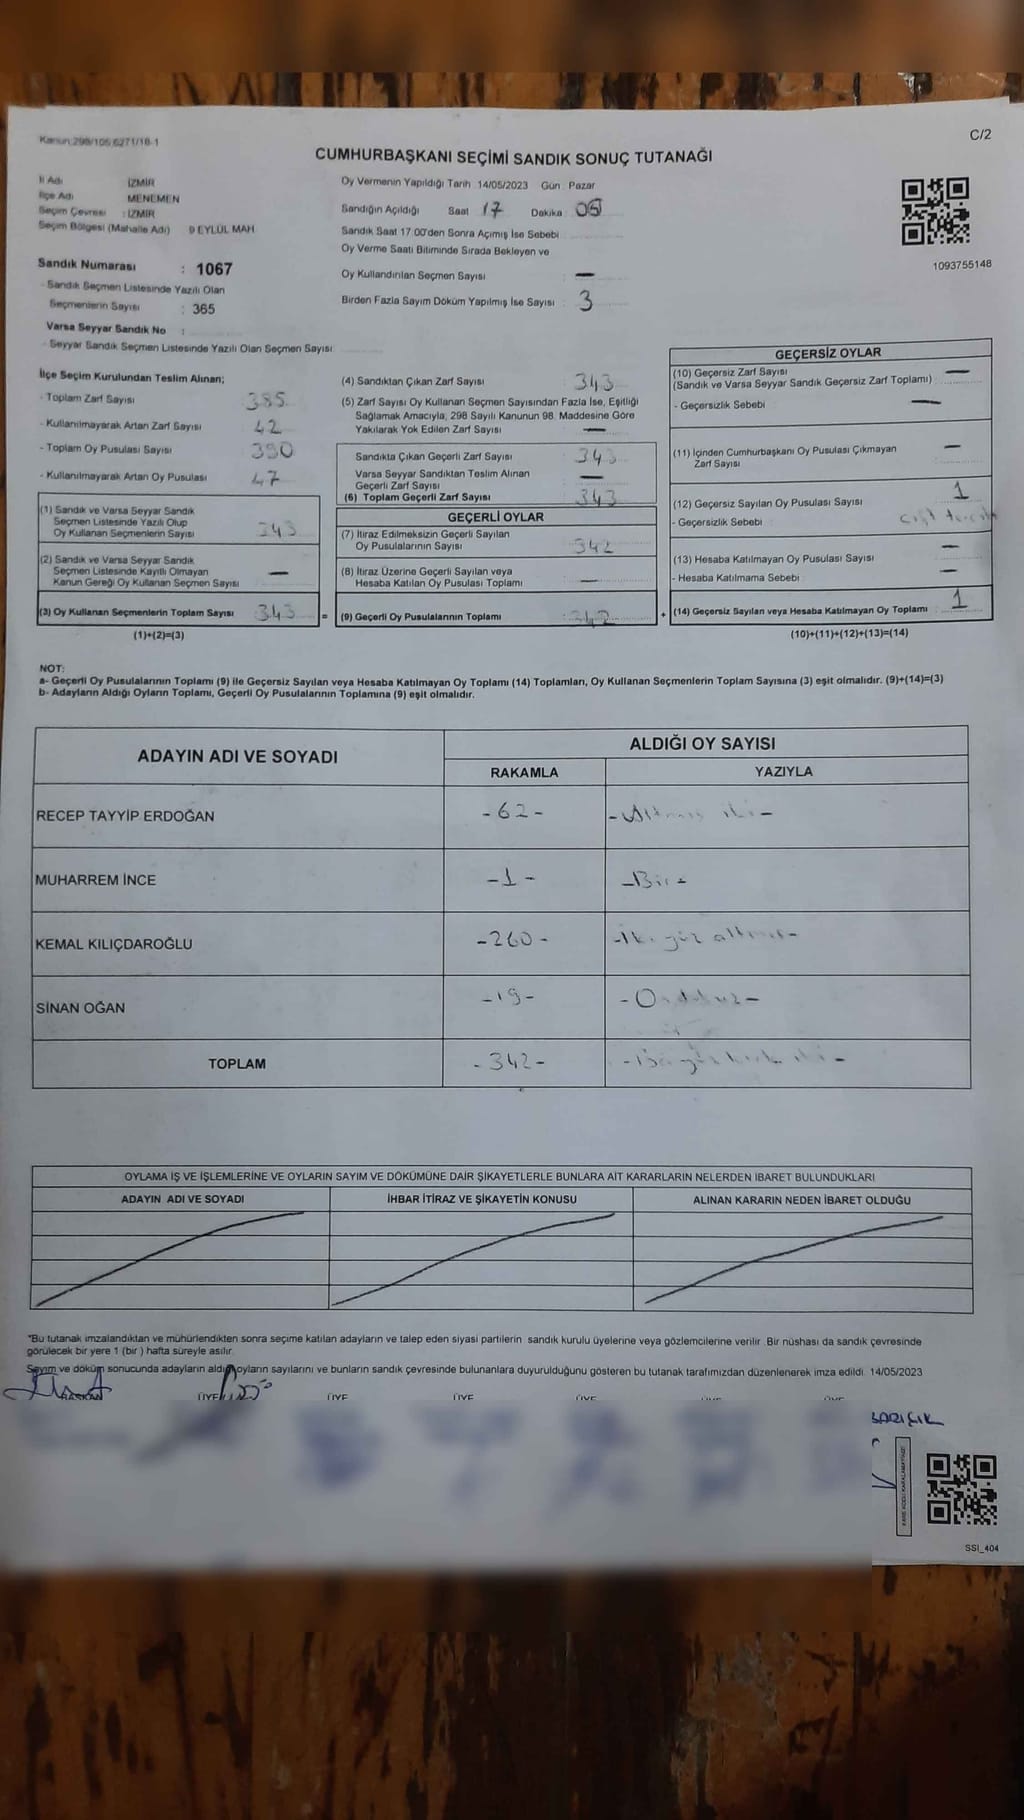 Kanun:298/105,6271/18-1
C/2
CUMHURBAŞKANI SEÇİMİ SANDIK SONUÇ TUTANAĞI
İl Adı İZMİR
İlçe Adı MENEMEN
Seçim Çevresi : İZMİR
Seçim Bölgesi (Mahalle Adı) 9 EYLÜL MAH
Sandık Numarası : 1067
- Sandık Seçmen Listesinde Yazılı Olan
Seçmenlerin Sayısı : 365
Varsa Seyyar Sandık No :
- Seyyar Sandık Seçmen Listesinde Yazılı Olan Seçmen Sayısı
Oy Vermenin Yapıldığı Tarih 14/05/2023 Gün Pazar
Sandığın Açıldığı Saat 17 Dakika 05
Sandık Saat 17.00'den Sonra Açımış İse Sebebi
Oy Verme Saati Bitiminde Sırada Bekleyen ve
Oy Kullandırılan Seçmen Sayısı : —
Birden Fazla Sayım Döküm Yapılmış İse Sayısı : 3
1093755148
İlçe Seçim Kurulundan Teslim Alınan;
- Toplam Zarf Sayısı 385
- Kullanılmayarak Artan Zarf Sayısı 42
- Toplam Oy Pusulası Sayısı 390
- Kullanılmayarak Artan Oy Pusulası 47
(1) Sandık ve Varsa Seyyar Sandık
Seçmen Listesinde Yazılı Olup
Oy Kullanan Seçmenlerin Sayısı 343
(2) Sandık ve Varsa Seyyar Sandık
Seçmen Listesinde Kayıtlı Olmayan
Kanun Gereği Oy Kullanan Seçmen Sayısı —
(3) Oy Kullanan Seçmenlerin Toplam Sayısı 343 =
(1)+(2)=(3)
(4) Sandıktan Çıkan Zarf Sayısı : 343
(5) Zarf Sayısı Oy Kullanan Seçmen Sayısından Fazla İse, Eşitliği
Sağlamak Amacıyla, 298 Sayılı Kanunun 98. Maddesine Göre
Yakılarak Yok Edilen Zarf Sayısı —
Sandıkta Çıkan Geçerli Zarf Sayısı 343
Varsa Seyyar Sandıktan Teslim Alınan
Geçerli Zarf Sayısı —
(6) Toplam Geçerli Zarf Sayısı 343
GEÇERLİ OYLAR
(7) İtiraz Edilmeksizin Geçerli Sayılan
Oy Pusulalarının Sayısı 342
(8) İtiraz Üzerine Geçerli Sayılan veya
Hesaba Katılan Oy Pusulası Toplamı —
(9) Geçerli Oy Pusulalarının Toplamı 342 +
GEÇERSİZ OYLAR
(10) Geçersiz Zarf Sayısı
(Sandık ve Varsa Seyyar Sandık Geçersiz Zarf Toplamı) —
- Geçersizlik Sebebi —
(11) İçinden Cumhurbaşkanı Oy Pusulası Çıkmayan
Zarf Sayısı —
(12) Geçersiz Sayılan Oy Pusulası Sayısı 1
- Geçersizlik Sebebi : çift tercih
(13) Hesaba Katılmayan Oy Pusulası Sayısı —
- Hesaba Katılmama Sebebi —
(14) Geçersiz Sayılan veya Hesaba Katılmayan Oy Toplamı : 1
(10)+(11)+(12)+(13)=(14)
NOT:
a- Geçerli Oy Pusulalarının Toplamı (9) ile Geçersiz Sayılan veya Hesaba Katılmayan Oy Toplamı (14) Toplamları, Oy Kullanan Seçmenlerin Toplam Sayısına (3) eşit olmalıdır. (9)+(14)=(3)
b- Adayların Aldığı Oyların Toplamı, Geçerli Oy Pusulalarının Toplamına (9) eşit olmalıdır.
ADAYIN ADI VE SOYADI ALDIĞI OY SAYISI
RAKAMLA YAZIYLA
RECEP TAYYİP ERDOĞAN -62- -Altmış iki-
MUHARREM İNCE -1- -Bir-
KEMAL KILIÇDAROĞLU -260- -İki yüz altmış-
SİNAN OĞAN -19- -Ondokuz-
TOPLAM -342-
OYLAMA İŞ VE İŞLEMLERİNE VE OYLARIN SAYIM VE DÖKÜMÜNE DAİR ŞİKAYETLERLE BUNLARA AİT KARARLARIN NELERDEN İBARET BULUNDUKLARI
ADAYIN ADI VE SOYADI İHBAR İTİRAZ VE ŞİKAYETİN KONUSU ALINAN KARARIN NEDEN İBARET OLDUĞU
*Bu tutanak imzalandıktan ve mühürlendikten sonra seçime katılan adayların ve talep eden siyasi partilerin sandık kurulu üyelerine veya gözlemcilerine verilir. Bir nüshası da sandık çevresinde
görülecek bir yere 1 (bir ) hafta süreyle asılır.
Sayım ve döküm sonucunda adayların aldığı oyların sayılarını ve bunların sandık çevresinde bulunanlara duyurulduğunu gösteren bu tutanak tarafımızdan düzenlenerek imza edildi. 14/05/2023
BAŞKAN ÜYE ÜYE ÜYE ÜYE
SARIŞIK
SSI_404